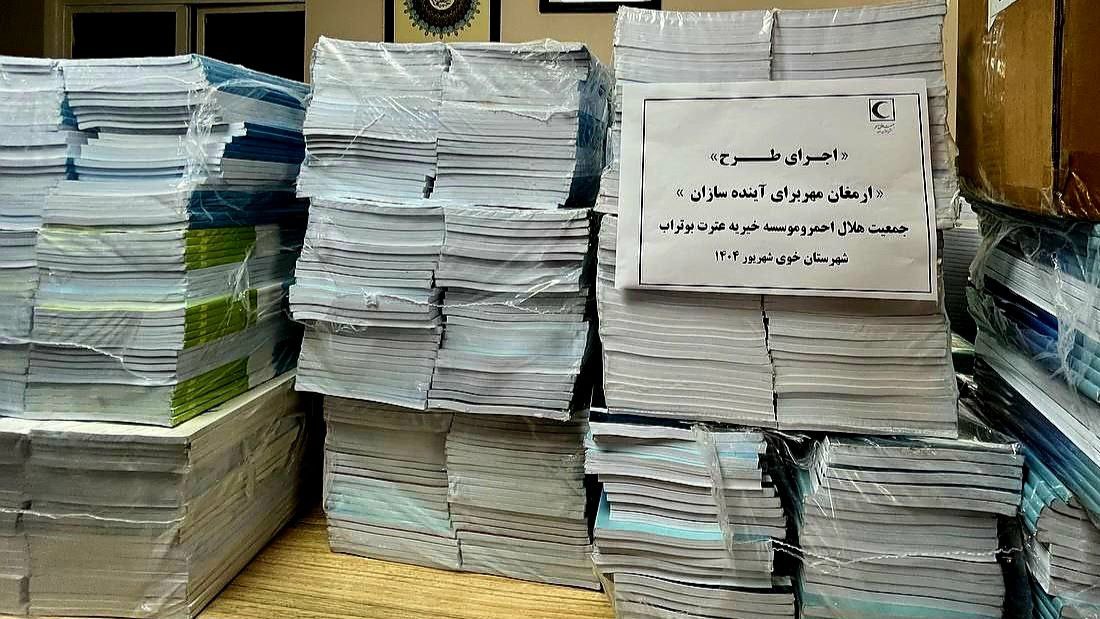 « اجرای طـــرح»
« ارمغان مهربرای آینده سازان »
جمعیت هلال احمروموسسه خیریه عترت بوتراب
شهرستان خوی شهریور ۱۴۰۴